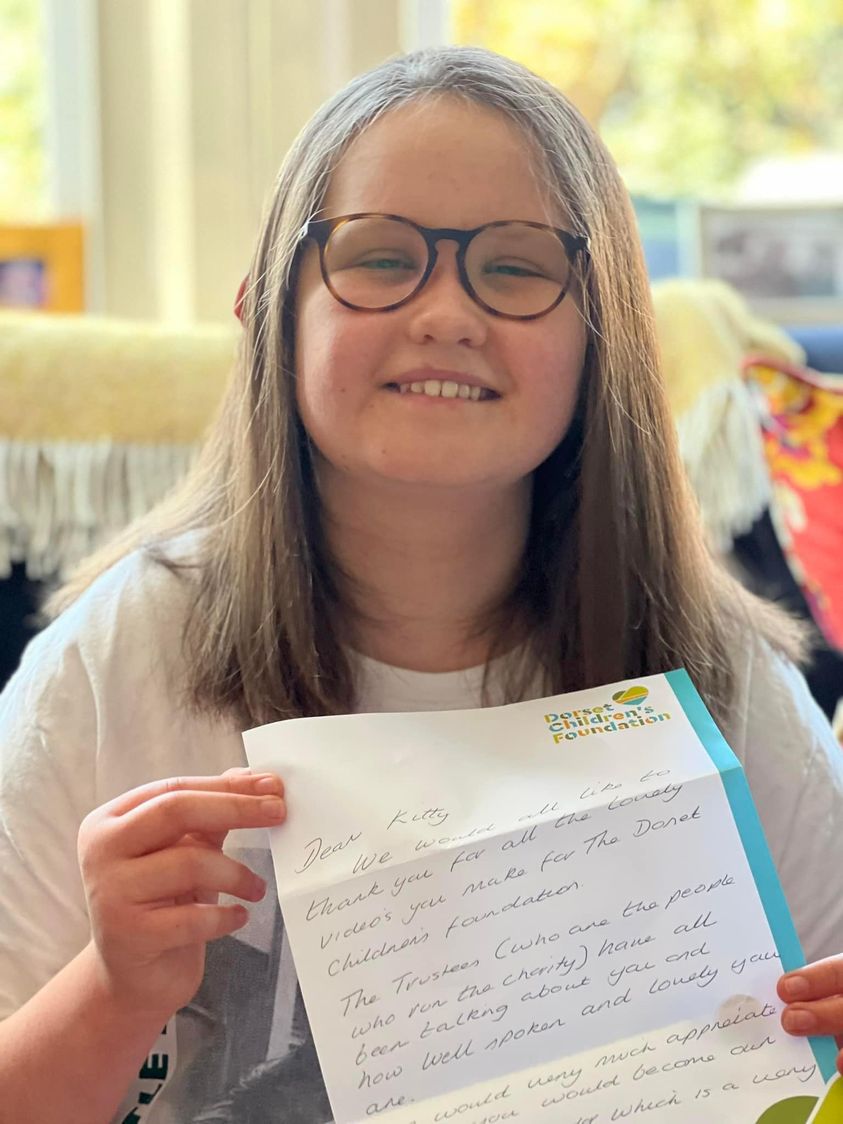 Dorset
Children's
Foundation
Dear Kitty
We would all like to
thank you for all the lovely
video's you make for The Dorset
Children's Foundation.
The Trustees (who are the people
who run the charity) have all
been talking about you and
how well spoken and lovely you
are.
would very much appreciate
you would become our
which is a very
TLE